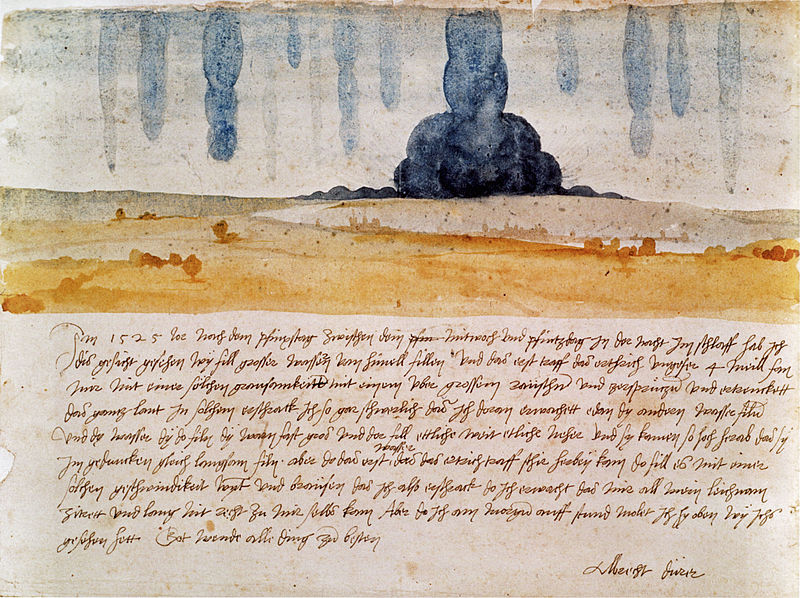 Im 1525 Jor noch dem pfinxstag zwischen dem pfin Mitwoch und pfintzdag in der nacht Im schlaff hab Ich
dis gesicht gesehen wy fill grosser wassern vom himell fillen Und das erst traff das erthrich ungefer 4 meill fan
mir mit einer solchen grausamkeitt mit einem uber grossem raüschn und zersprützn und ertrenckett
das gantz lant In solchem erschrack Ich so gar schwerlich das Ich doran erwachett edan dy andern wasser filn
Und dy wasser dy do filn dy warn fast gros und der fill ettliche weit etliche neher und sy kamen so hoch herab das sy
Im gedancken gleich langsam filn. aber do das erst wasser das das ertrich traff schir herbey kam do fill es mit einer
solchen geschwindikeit wynt und braüsen das Ich also erschrack do Ich erwacht das mir all mein leichnam
zitrett und lang nit recht zu mir selbs kam Aber do Ich am morgn auff stund molet Ich hy oben wy Ichs
gesehen hett. Got wende alle ding zu besten
Albrecht dürer